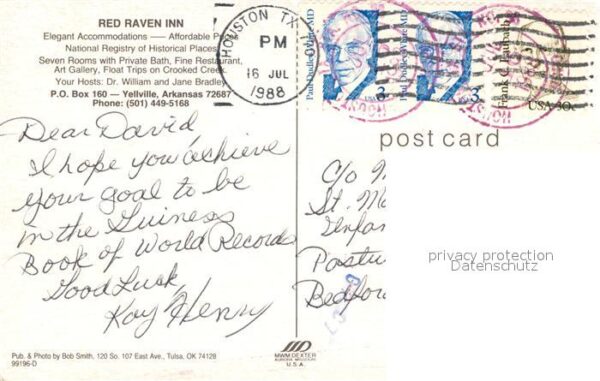 RED RAVEN INN
Elegant Accommodations — Affordable
National Registry of Historical Places
Seven Rooms with Private Bath, Fine Restaurant,
Art Gallery, Float Trips on Crooked Creek.
Your Hosts: Dr. William and Jane Bradley
P.O. Box 160 — Yellville, Arkansas 72687
Phone: (501) 449-5168
HOUSTON TX
PM
16 JUL
1988
Paul Dudley White MD
3
Paul Dudley White MD
3
USA 30c
post card
Dear David,
I hope you achieve
your goal to be
in the Guiness
Book of World Records
Good Luck,
Kay Henry
C/o
St.
Bedfor
privacy protection
Datenschutz
Pub. & Photo by Bob Smith, 120 So. 107 East Ave., Tulsa, OK 74128
99196-D
MWM DEXTER
AURORA MISSOURI
U.S.A.